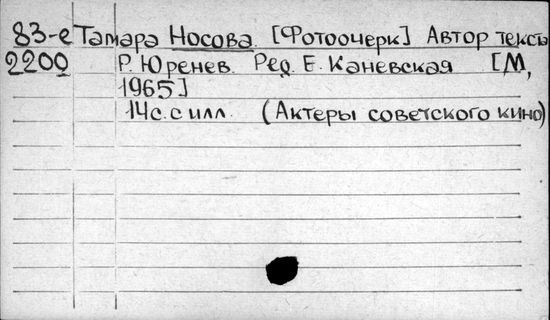 83-е Тамара Носова. [Фотоочерк] Автор текста
2200 Р. Юренев. Ред. Е. Каневская [М,
1965]
14с. с илл. (Актеры советского кино)